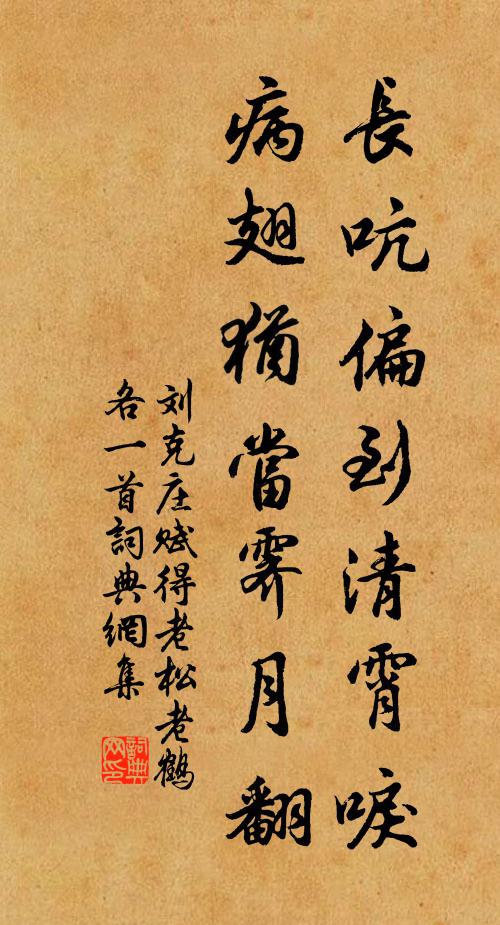 長吭偏到清霄唳
病翅猶當霽月翻
刘克庄赋得老松老鶴
各一首詞典網集
詞典
网印